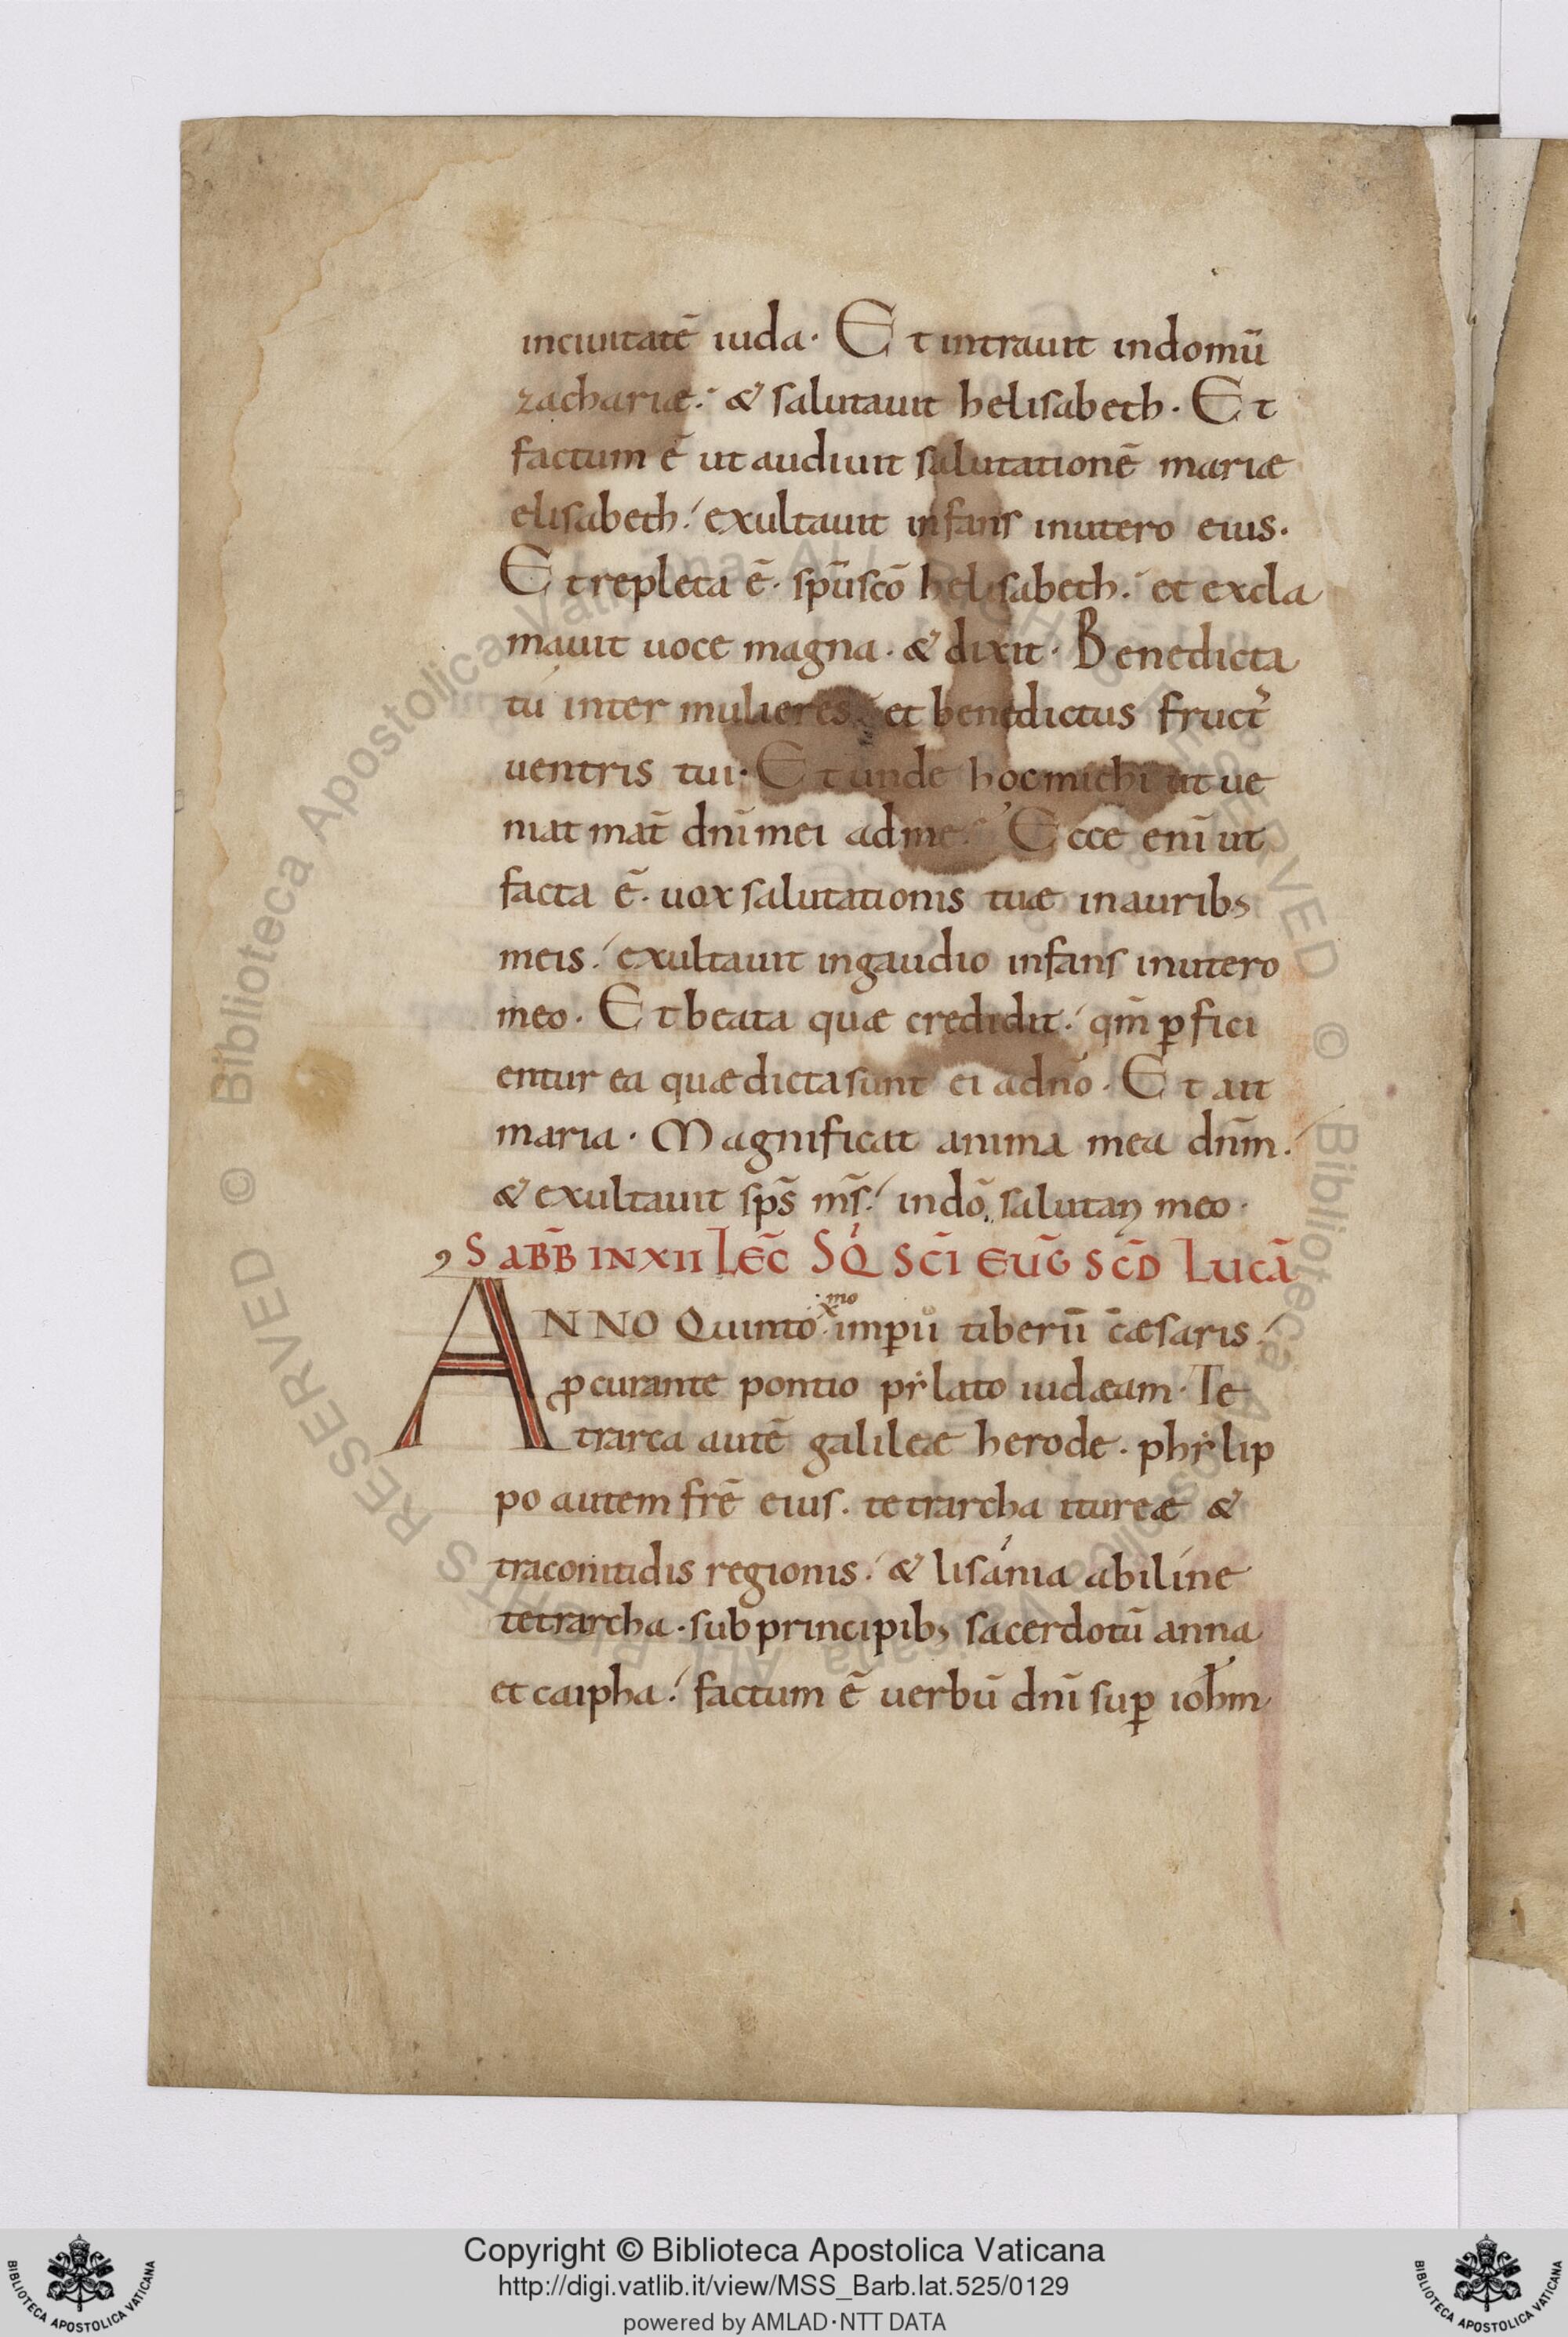 inciuitatē iuda. Et intrauit indomū
zachariæ. & salutauit helisabeth. Et
factum ē ut audiuit salutationē mariæ
elisabeth. exultauit infans inutero eius.
Et repleta ē. spūscō helisabeth. et excla
mauit uoce magna. & dixit. Benedicta
tú inter mulieres et benedictus fruct᾿
uentris tui. Et unde hocmichi ut ue
niat mat̄ dn̄i mei adme. Ecce enī ut
facta ē. uox salutationis tuæ inaurib;
meis. exultauit ingaudio infans inutero
meo. Et beata quæ credidit. qm̄ ꝑfici
entur ea quædictasunt ei adn̄o. Et ait
maria. Magnificat anima mea dn̄m.
& exultauit sp̄s m̄s. indō salutaꝛ meo.
SABB̄ IN XII LEC̄ SQ̇ SC̄I EUḠ SC̄D LUCĀ
ANNO Quinto x᷎mo imꝑii tiberii cæsaris.
ꝓcurante pontio pẏlato iudæam. Te
trarca autē galileæ herode. phẏlip
po autem frē eius. tetrarcha itureæ &
traconitidis regionis. & lisánia abilíne
tetrarcha. sub principib; sacerdotū anna
et caipha. factum ē uerbū dn̄i suꝑ ioh̄m
Copyright © Biblioteca Apostolica Vaticana
http://digi.vatlib.it/view/MSS_Barb.lat.525/0129
powered by AMLAD·NTT DATA